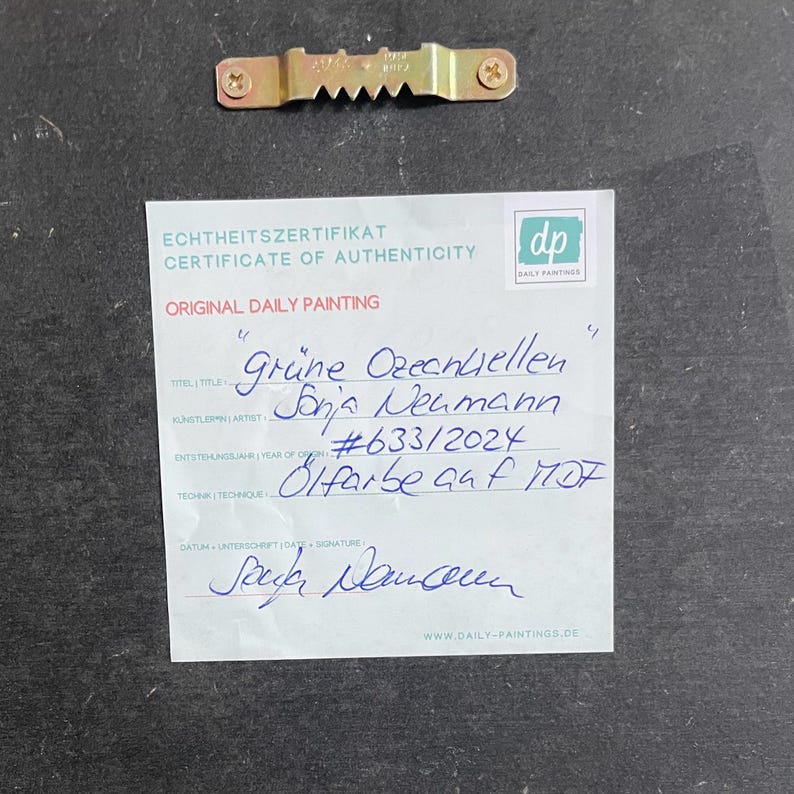 ECHTHEITSZERTIFIKAT
CERTIFICATE OF AUTHENTICITY
dp
DAILY PAINTINGS
ORIGINAL DAILY PAINTING
TITEL | TITLE : "Grüne Ozeanwellen"
KÜNSTLER*IN | ARTIST : Sonja Neumann
ENTSTEHUNGSJAHR | YEAR OF ORIGIN : #633/2024
TECHNIK | TECHNIQUE : Ölfarbe auf MDF
DATUM + UNTERSCHRIFT | DATE + SIGNATURE :
Sonja Neumann
WWW.DAILY-PAINTINGS.DE